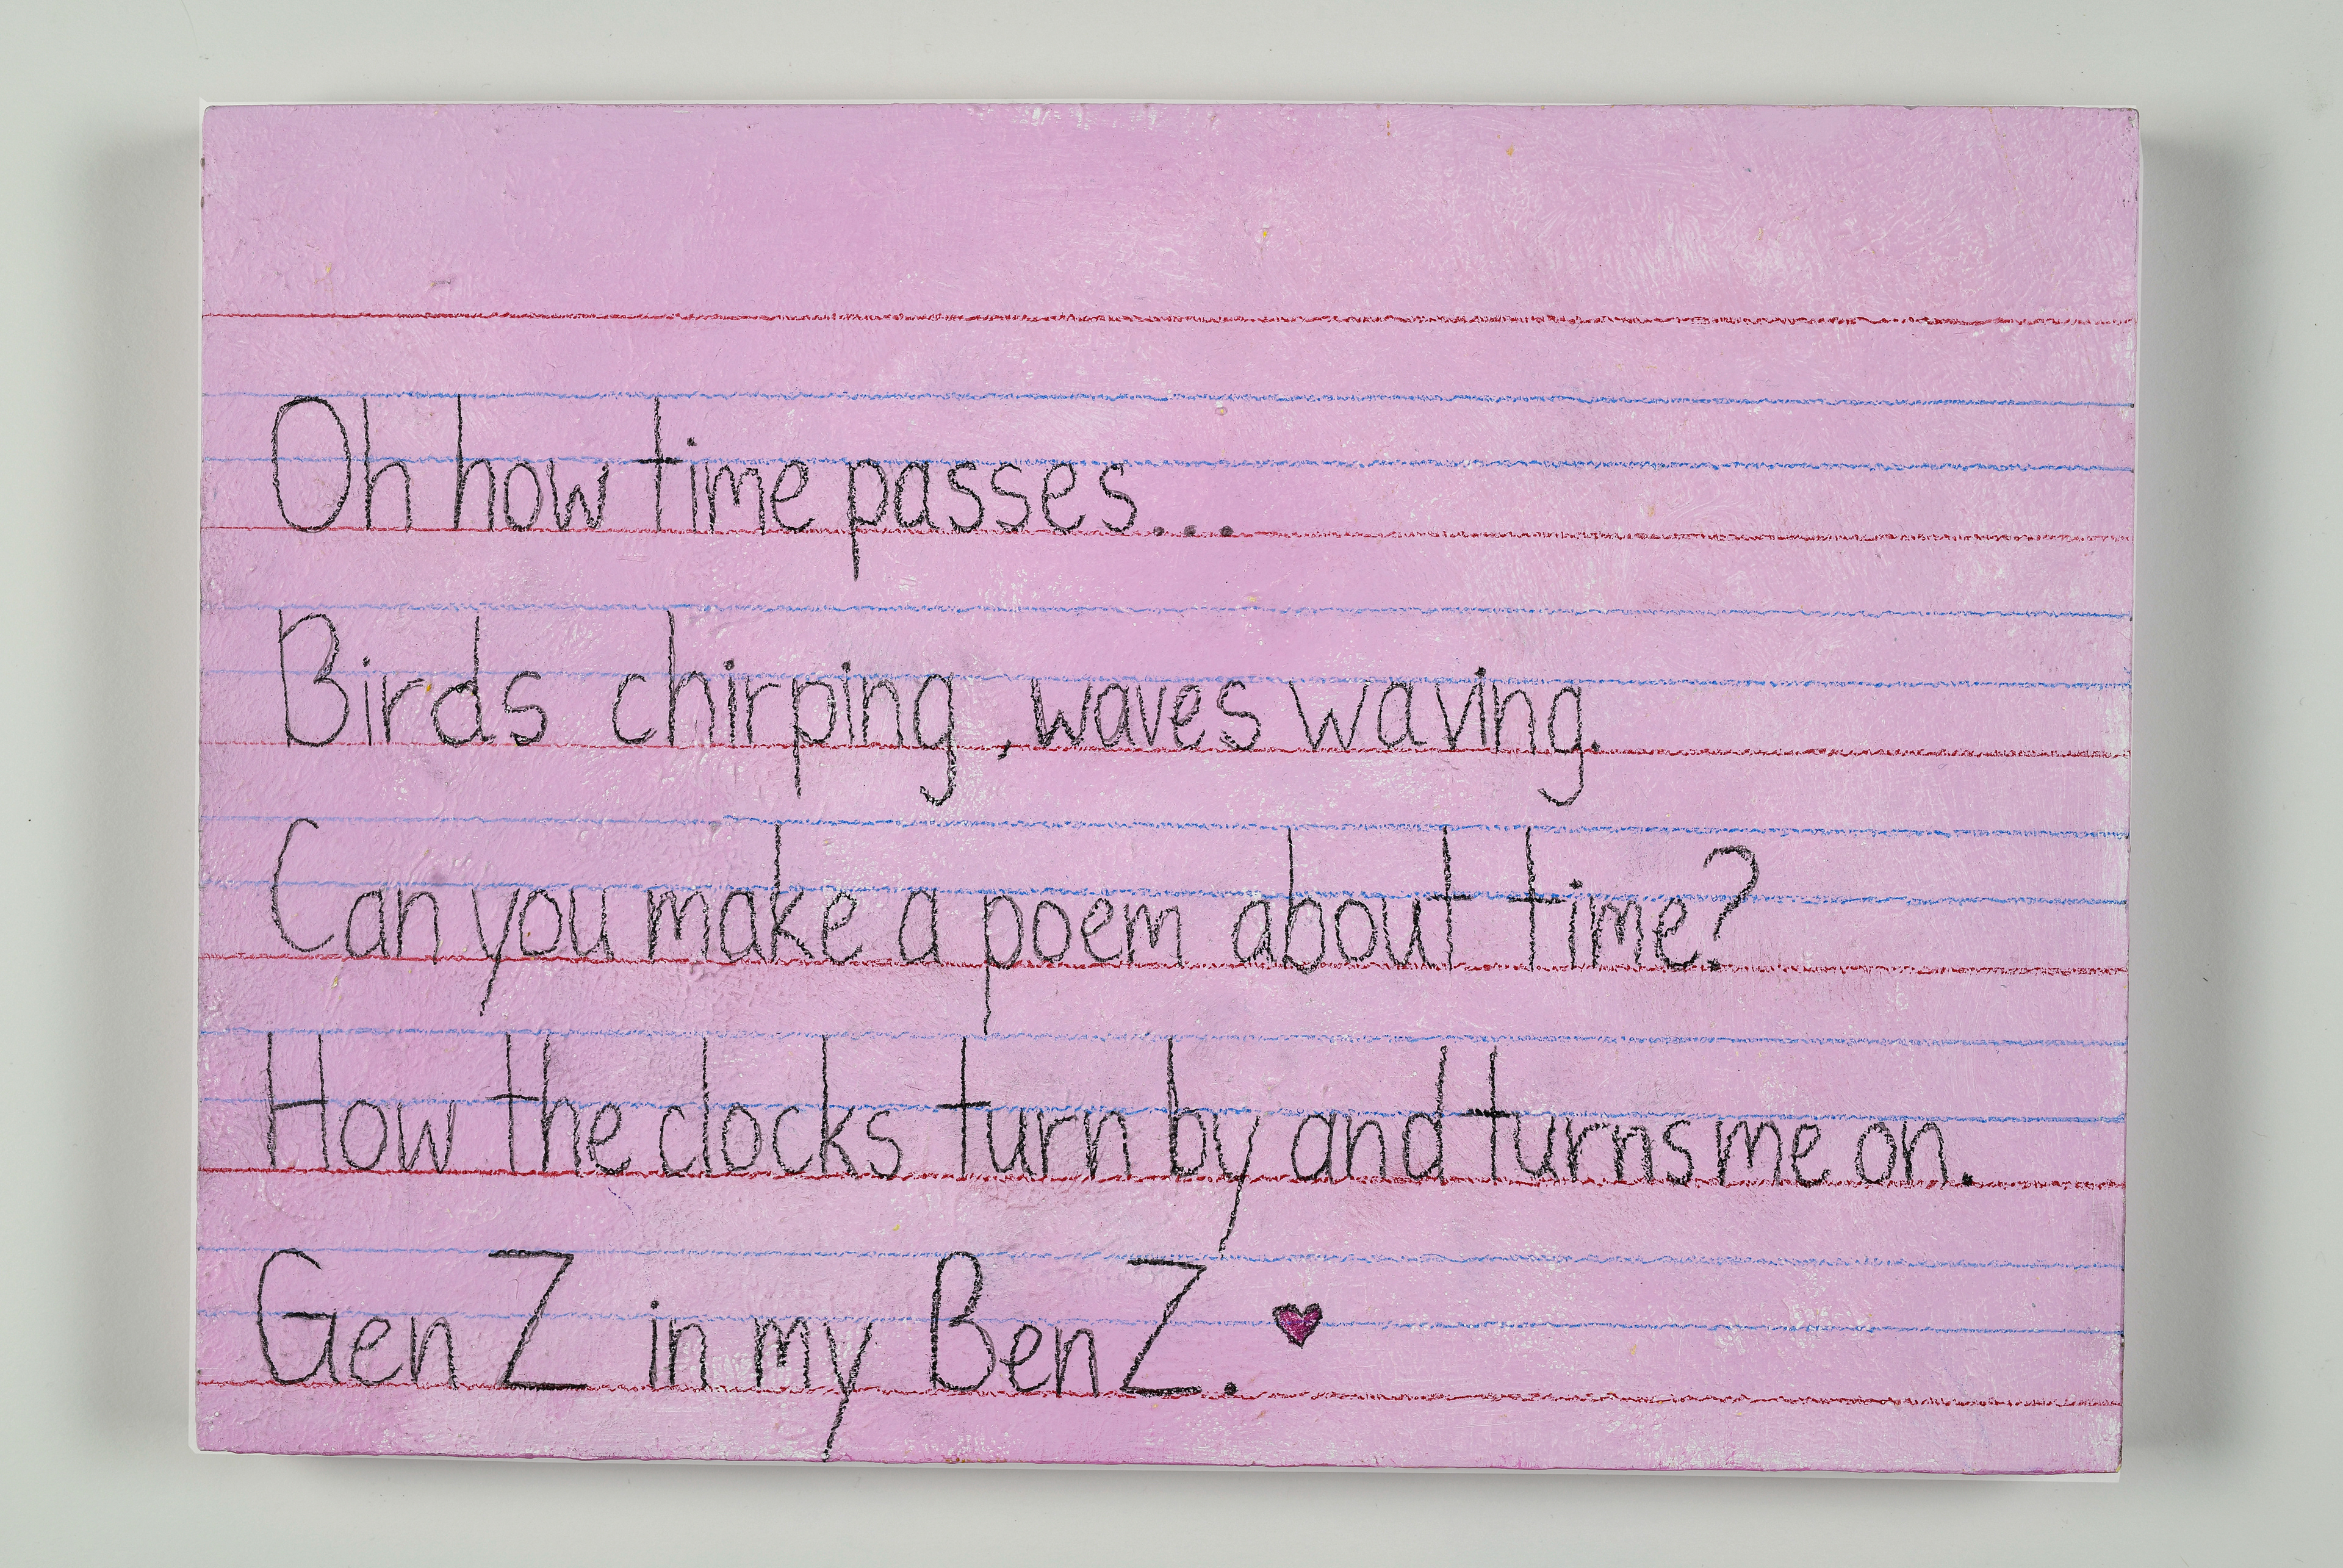 Oh how time passes...
Birds chirping, waves waving.
Can you make a poem about time?
How the clocks turn by and turns me on.
Gen Z in my BenZ. ♥